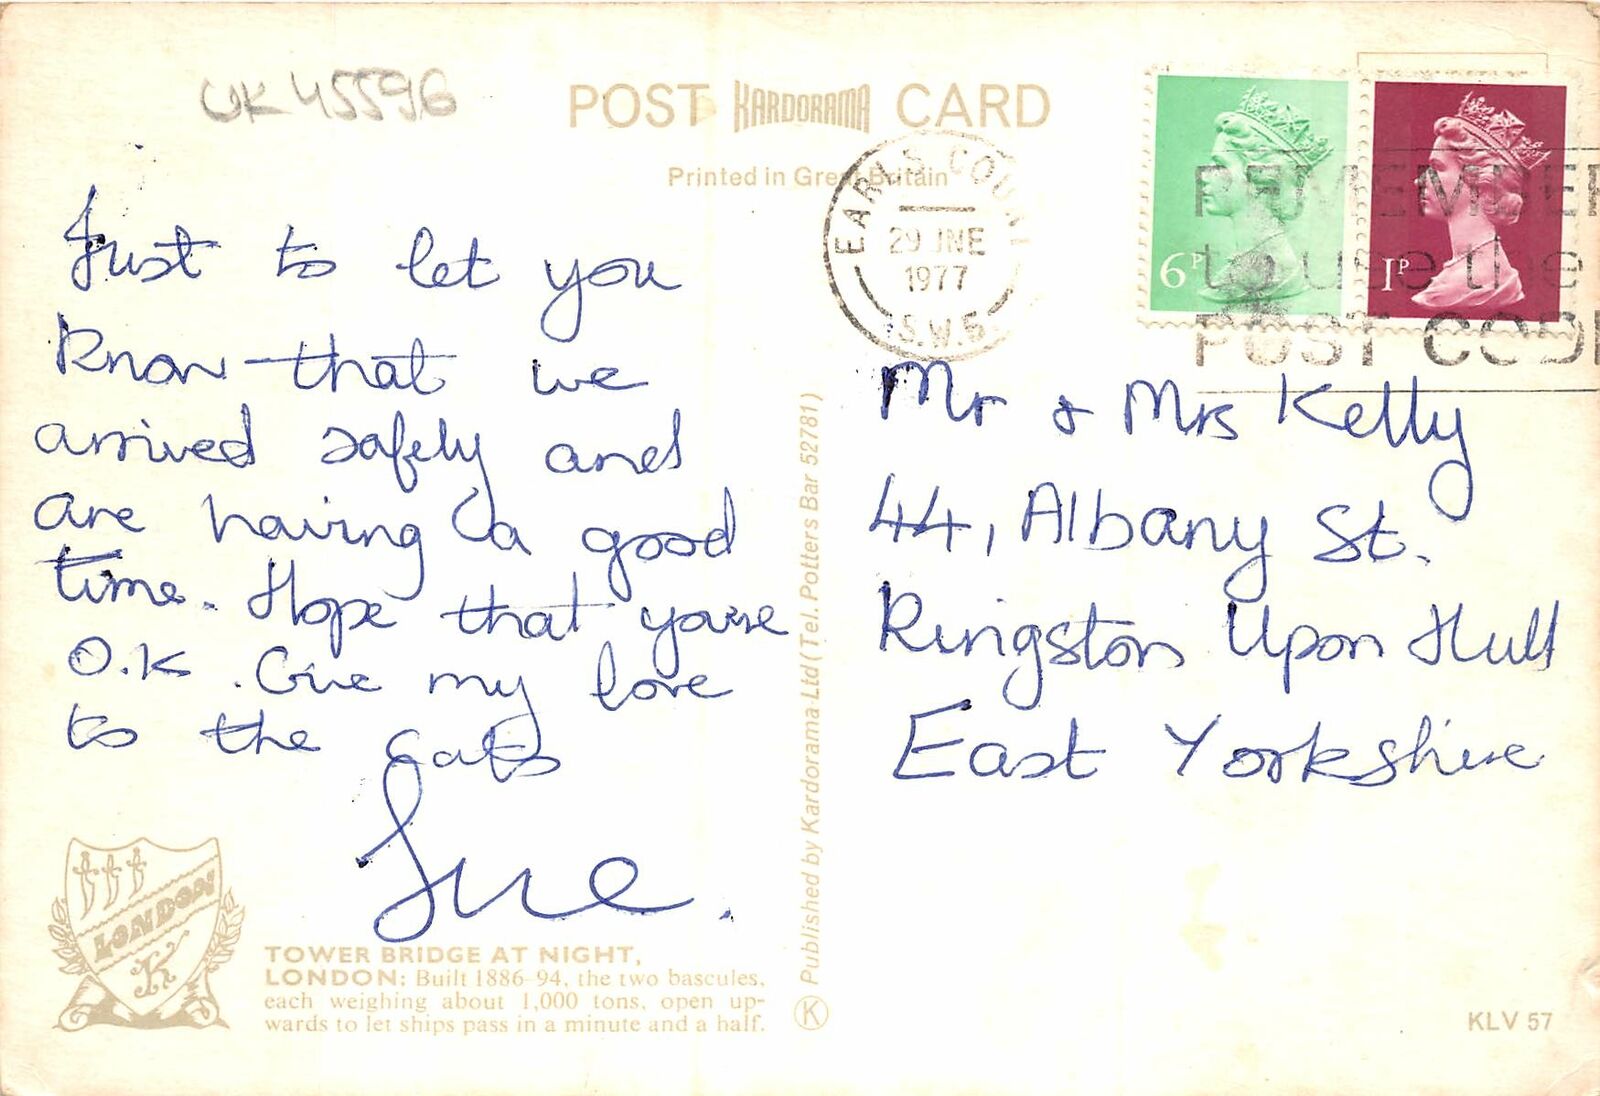 UK 45596
POST KARDORAMA CARD
Printed in Great Britain
EARLS COURT
29 JNE
1977
S.W.5
6P
1P
REMEMBER
to use the
POST CODE
Just to let you
Know that we
arrived safely and
are having a good
time. Hope that you're
O.K. Give my love
to the cats
Sue.
Mr & Mrs Kelly
44, Albany St.
Kingston Upon Hull
East Yorkshire
Published by Kardorama Ltd (Tel. Potters Bar 52781)
K
LONDON
K
TOWER BRIDGE AT NIGHT,
LONDON: Built 1886-94, the two bascules,
each weighing about 1,000 tons, open up-
wards to let ships pass in a minute and a half.
KLV 57